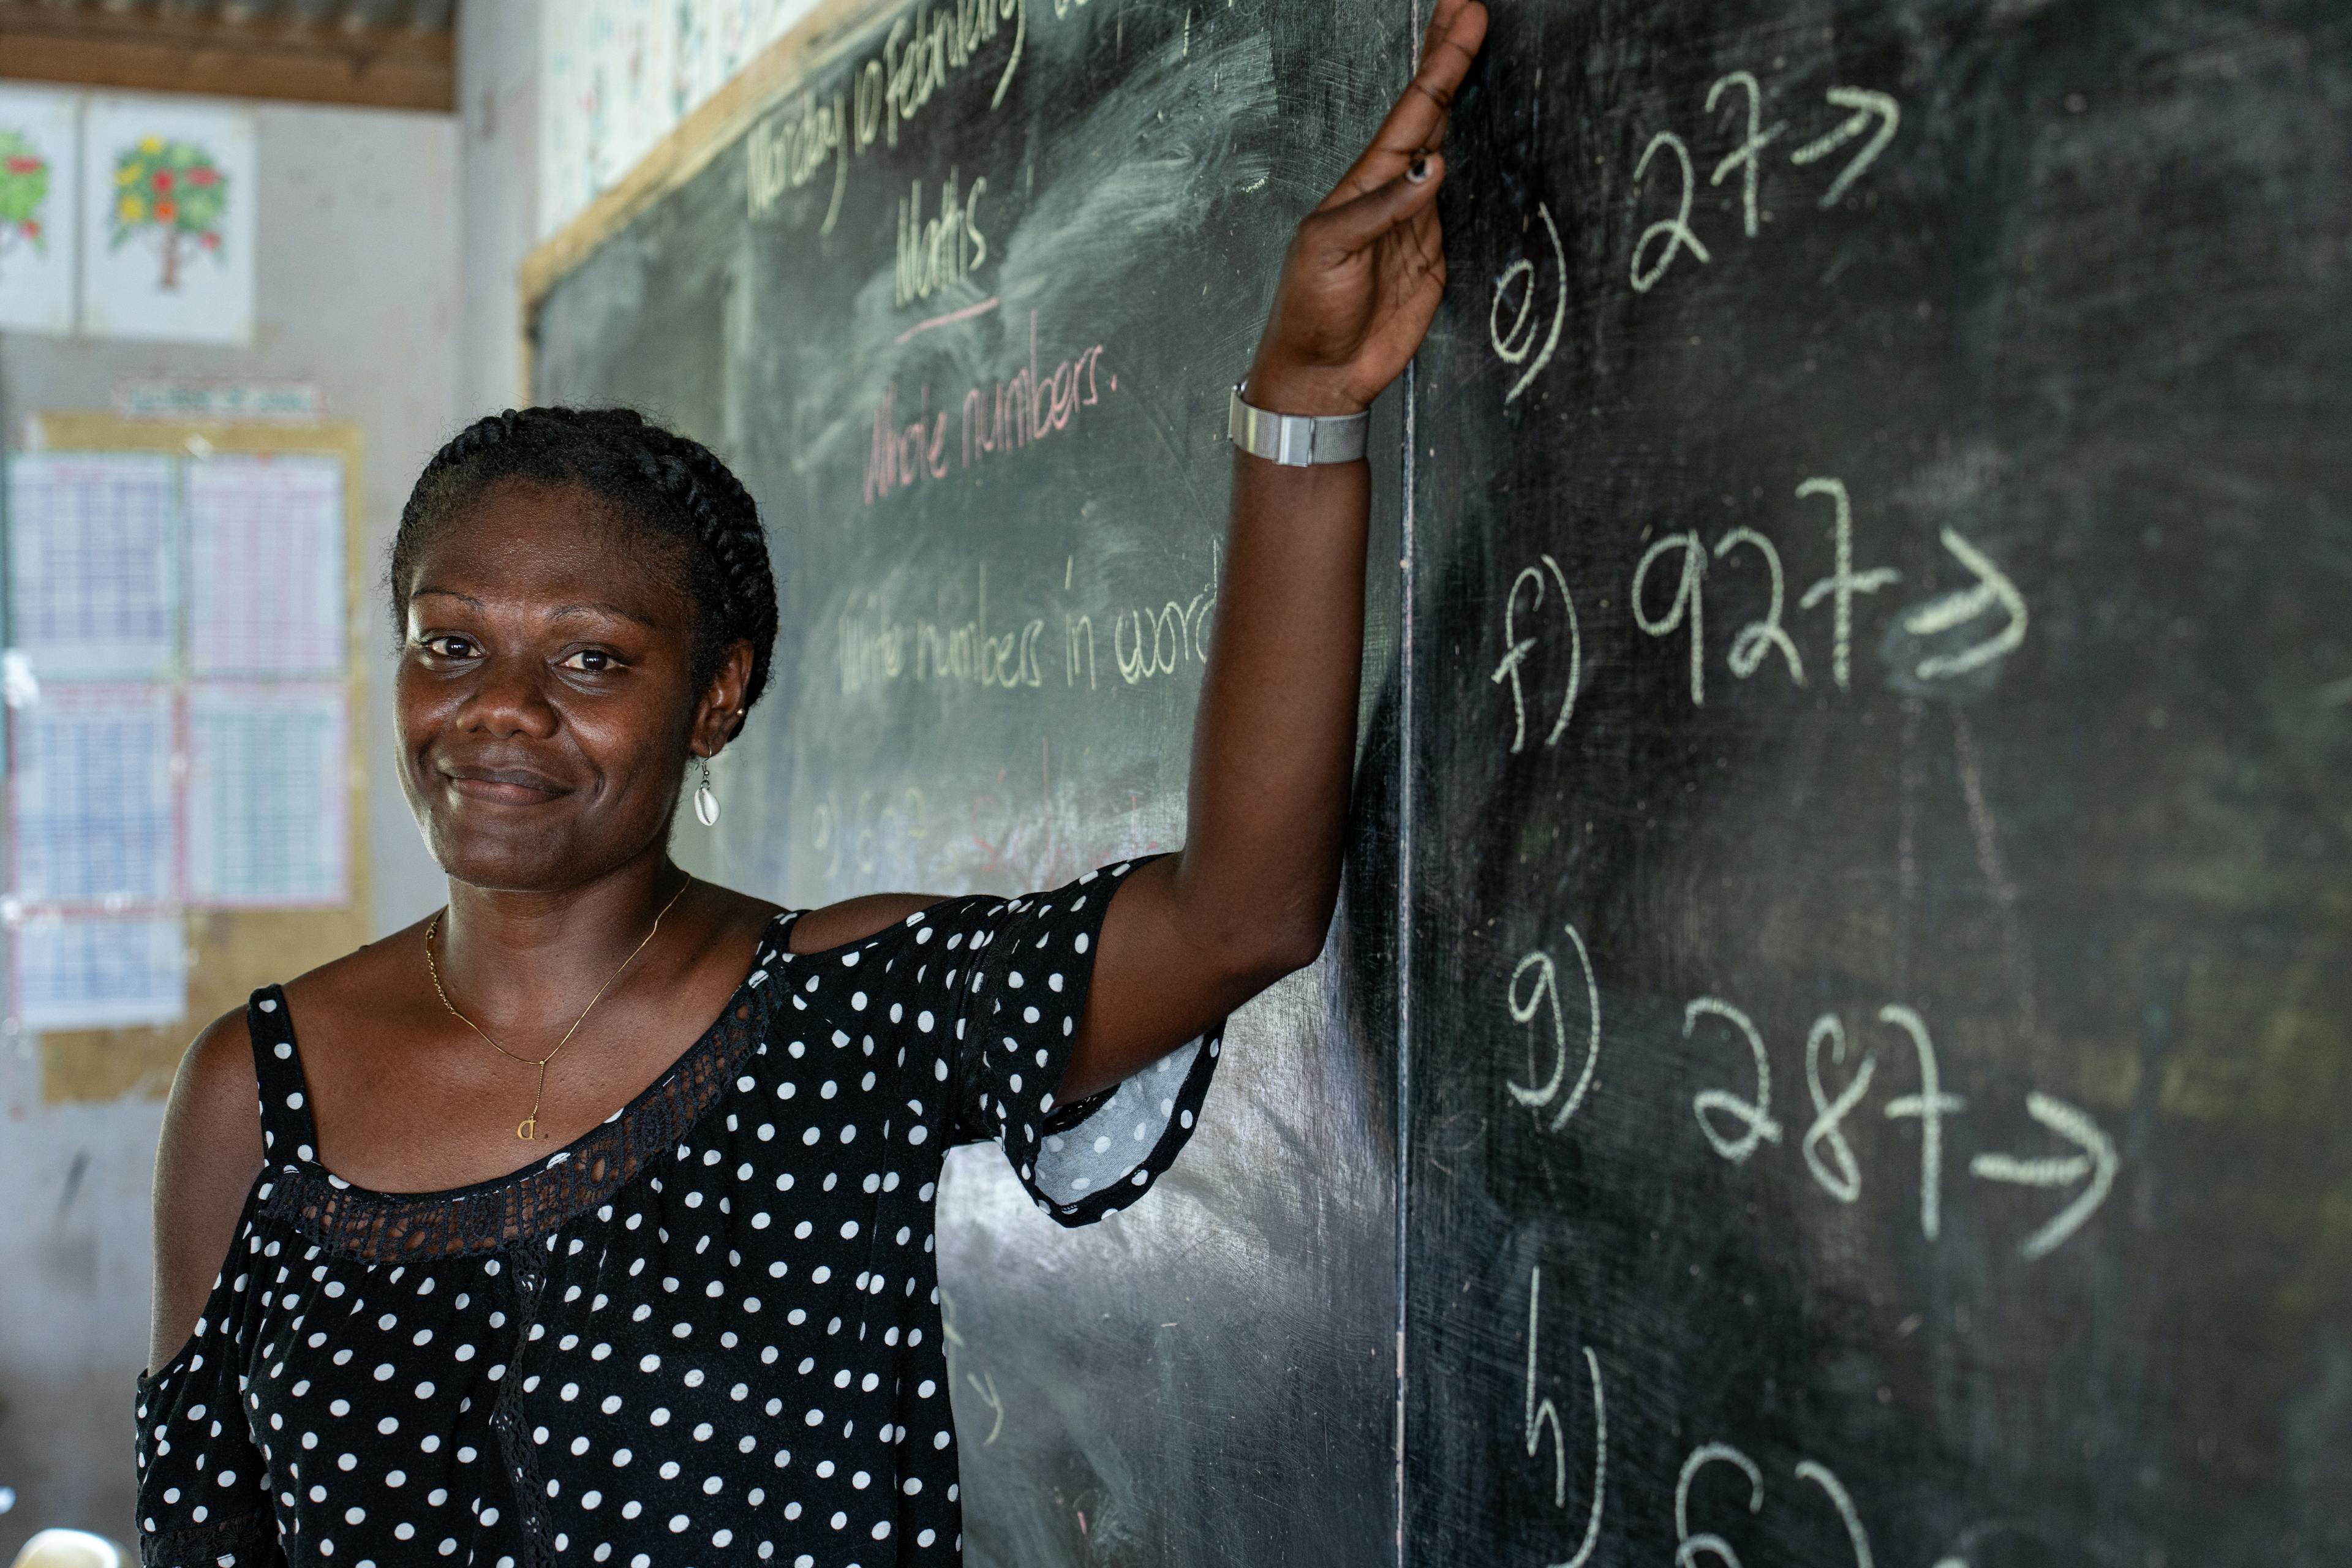 Monday 10 February
Maths
Whole numbers.
Write numbers in word
e) 27→
f) 927→
g) 287→
h)